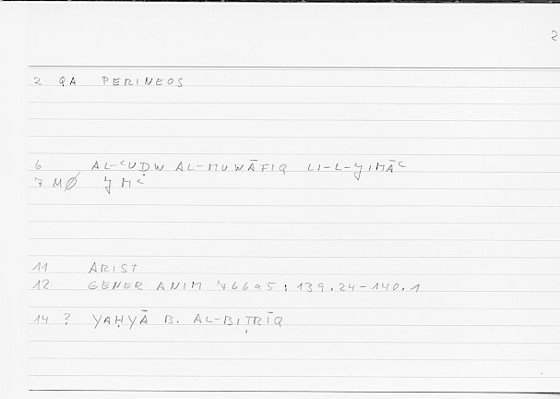 2
2 QA PERINEOS
6 AL-ʿUḌW AL-MUWĀFIQ LI-L-ǦIMĀʿ
7 MØ ǦMʿ
11 ARIST
12 GENER ANIM 766a5 ; 139.24-140.1
14 ? YAḤYĀ B. AL-BIṬRĪQ